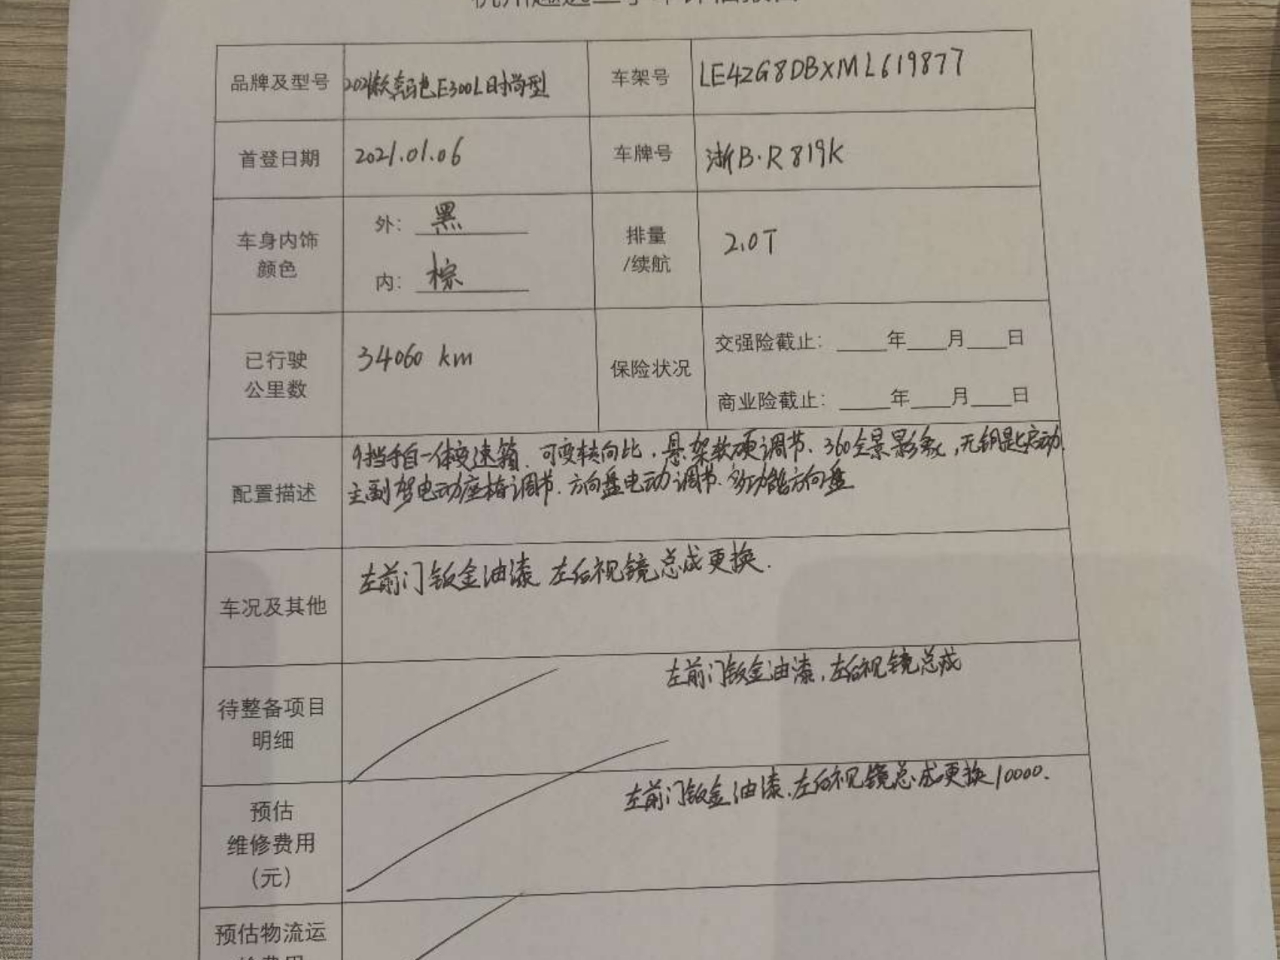 品牌及型号 2021款奔驰E300L时尚型 车架号 LE4ZG8DBXML619877
首登日期 2021.01.06 车牌号 浙B·R819K
车身内饰
颜色
外: 黑
内: 棕
排量
/续航
2.0T
已行驶
公里数
34060 km
保险状况
交强险截止: ____年____月____日
商业险截止: ____年____月____日
配置描述
9挡手自一体变速箱、可变转向比、悬架软硬调节、360全景影象,无钥匙启动、
主副驾电动座椅调节、方向盘电动调节、多功能方向盘
车况及其他
左前门钣金油漆 左后视镜总成更换.
待整备项目
明细
左前门钣金油漆,左后视镜总成
预估
维修费用
(元)
左前门钣金油漆,左后视镜总成更换10000.
预估物流运